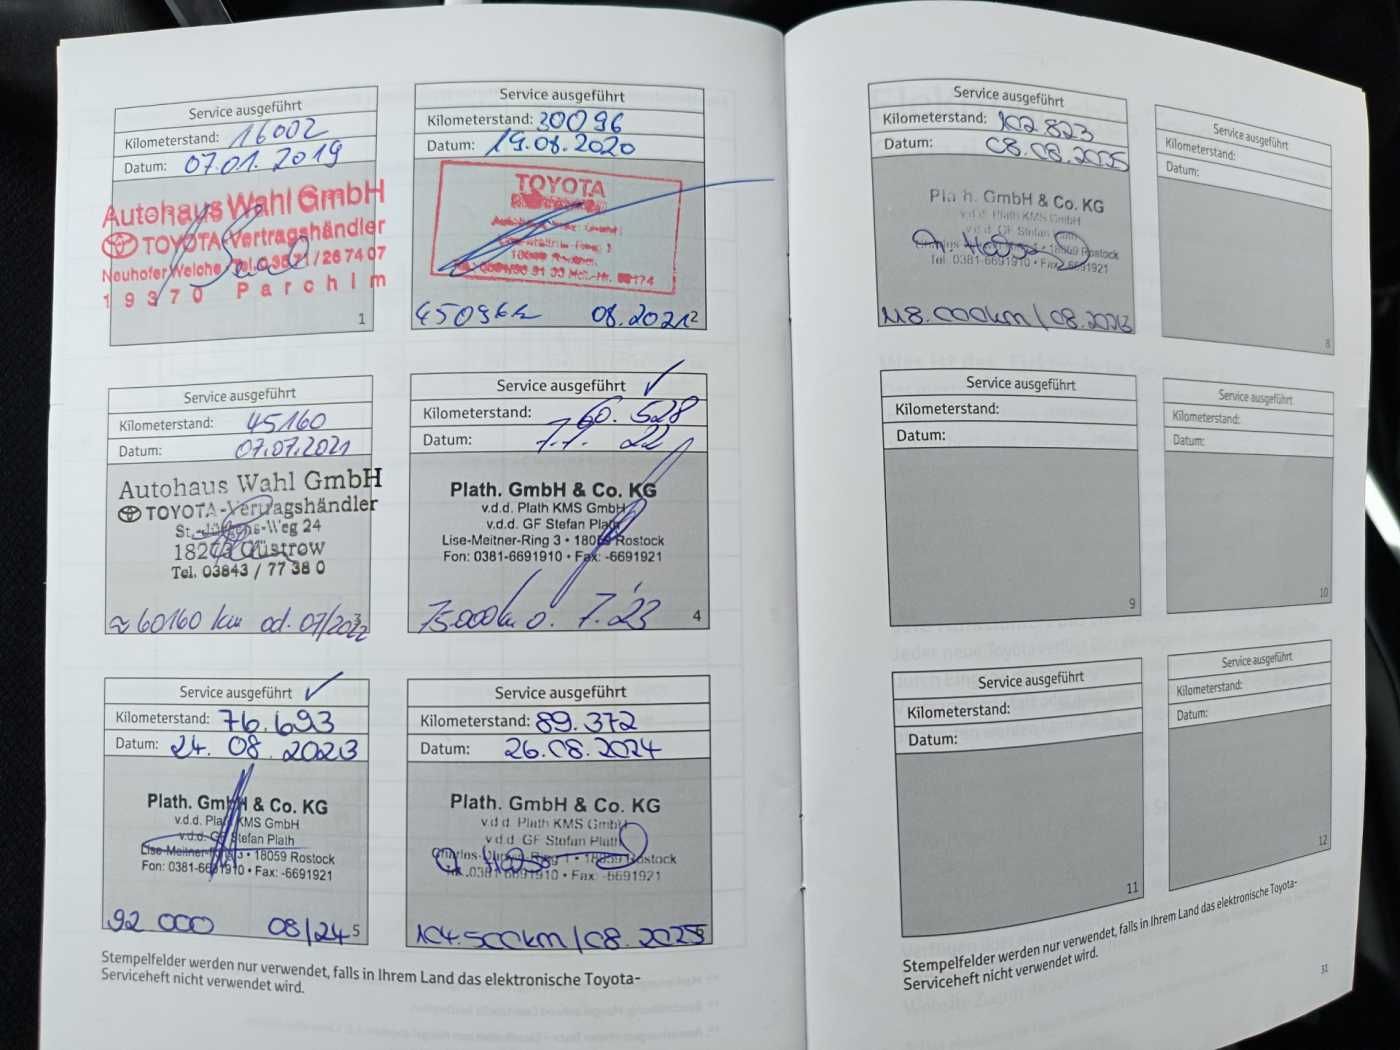 Service ausgeführt
Kilometerstand: 16002
Datum: 07.01.2019
Autohaus Wahl GmbH
TOYOTA-Vertragshändler
Neuhofer Weiche Tel. 03871/267407
19370 Parchim
1
Service ausgeführt
Kilometerstand: 30096
Datum: 19.08.2020
TOYOTA
45096km 08.2021
2
Service ausgeführt
Kilometerstand: 45160
Datum: 07.07.2021
Autohaus Wahl GmbH
TOYOTA-Vertragshändler
Weg 24
Güstrow
Tel. 03843 / 77 38 0
≈ 60160 km od. 07/2022
3
Service ausgeführt ✓
Kilometerstand: 60.528
Datum: 7.7. 22
Plath. GmbH & Co. KG
v.d.d. Plath KMS GmbH
v.d.d. GF Stefan Plath
Lise-Meitner-Ring 3 • 18059 Rostock
Fon: 0381-6691910 • Fax: -6691921
75.000km o. 7.23
4
Service ausgeführt ✓
Kilometerstand: 76.693
Datum: 24.08.2023
Plath. GmbH & Co. KG
v.d.d. Plath KMS GmbH
v.d.d. GF Stefan Plath
Lise-Meitner-Ring 3 • 18059 Rostock
Fon: 0381-6691910 • Fax: -6691921
92 000 08/24
5
Service ausgeführt
Kilometerstand: 89.372
Datum: 26.08.2024
Plath. GmbH & Co. KG
v.d.d. Plath KMS GmbH
v.d.d. GF Stefan Plath
Ring 1 • 18059 Rostock
Tel. 0381-6691910 • Fax: -6691921
104.500km/08.2025
Stempelfelder werden nur verwendet, falls in Ihrem Land das elektronische Toyota-
Serviceheft nicht verwendet wird.
Service ausgeführt
Kilometerstand: 102.823
Datum: 08.08.2025
Plath. GmbH & Co. KG
v.d.d. Plath KMS GmbH
v.d.d. GF Stefan Plath
18059 Rostock
Tel. 0381-6691910 • Fax: -6691921
118.000km/08.2026
Service ausgeführt
Kilometerstand:
Datum:
8
Service ausgeführt
Kilometerstand:
Datum:
9
Service ausgeführt
Kilometerstand:
Datum:
10
Service ausgeführt
Kilometerstand:
Datum:
11
Service ausgeführt
Kilometerstand:
Datum:
12
Stempelfelder werden nur verwendet, falls in Ihrem Land das elektronische Toyota-
Serviceheft nicht verwendet wird.
31